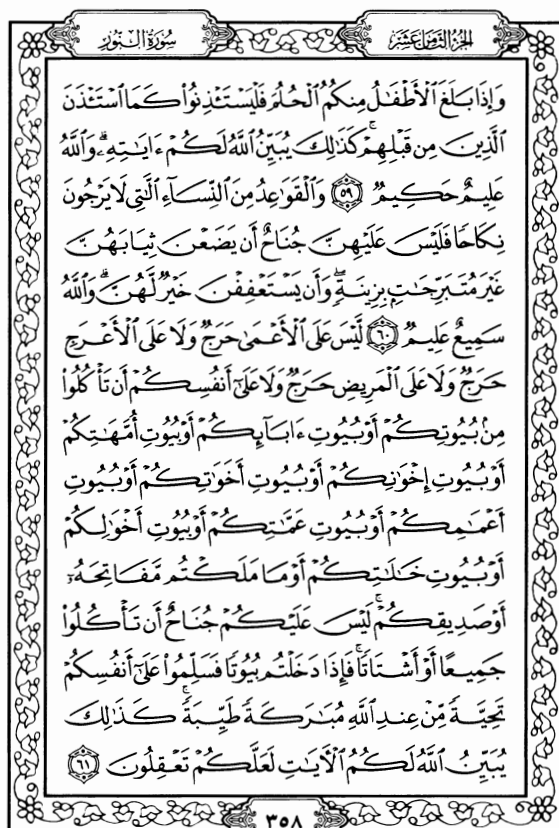 سورة النور
الجزء الثامن عشر
وَإِذَا بَلَغَ ٱلْأَطْفَـٰلُ مِنكُمُ ٱلْحُلُمَ فَلْيَسْتَـْٔذِنُوا۟ كَمَا ٱسْتَـْٔذَنَ
ٱلَّذِينَ مِن قَبْلِهِمْ ۚ كَذَٰلِكَ يُبَيِّنُ ٱللَّهُ لَكُمْ ءَايَـٰتِهِۦ ۗ وَٱللَّهُ
عَلِيمٌ حَكِيمٌ ٥٩ وَٱلْقَوَٰعِدُ مِنَ ٱلنِّسَآءِ ٱلَّـٰتِى لَا يَرْجُونَ
نِكَاحًا فَلَيْسَ عَلَيْهِنَّ جُنَاحٌ أَن يَضَعْنَ ثِيَابَهُنَّ
غَيْرَ مُتَبَرِّجَـٰتٍۭ بِزِينَةٍ ۖ وَأَن يَسْتَعْفِفْنَ خَيْرٌ لَّهُنَّ ۗ وَٱللَّهُ
سَمِيعٌ عَلِيمٌ ٦٠ لَّيْسَ عَلَى ٱلْأَعْمَىٰ حَرَجٌ وَلَا عَلَى ٱلْأَعْرَجِ
حَرَجٌ وَلَا عَلَى ٱلْمَرِيضِ حَرَجٌ وَلَا عَلَىٰٓ أَنفُسِكُمْ أَن تَأْكُلُوا۟
مِنۢ بُيُوتِكُمْ أَوْ بُيُوتِ ءَابَآئِكُمْ أَوْ بُيُوتِ أُمَّهَـٰتِكُمْ
أَوْ بُيُوتِ إِخْوَٰنِكُمْ أَوْ بُيُوتِ أَخَوَٰتِكُمْ أَوْ بُيُوتِ
أَعْمَـٰمِكُمْ أَوْ بُيُوتِ عَمَّـٰتِكُمْ أَوْ بُيُوتِ أَخْوَٰلِكُمْ
أَوْ بُيُوتِ خَـٰلَـٰتِكُمْ أَوْ مَا مَلَكْتُم مَّفَاتِحَهُۥٓ
أَوْ صَدِيقِكُمْ ۚ لَيْسَ عَلَيْكُمْ جُنَاحٌ أَن تَأْكُلُوا۟
جَمِيعًا أَوْ أَشْتَاتًا ۚ فَإِذَا دَخَلْتُم بُيُوتًا فَسَلِّمُوا۟ عَلَىٰٓ أَنفُسِكُمْ
تَحِيَّةً مِّنْ عِندِ ٱللَّهِ مُبَـٰرَكَةً طَيِّبَةً ۚ كَذَٰلِكَ
يُبَيِّنُ ٱللَّهُ لَكُمُ ٱلْـَٔايَـٰتِ لَعَلَّكُمْ تَعْقِلُونَ ٦١
٣٥٨